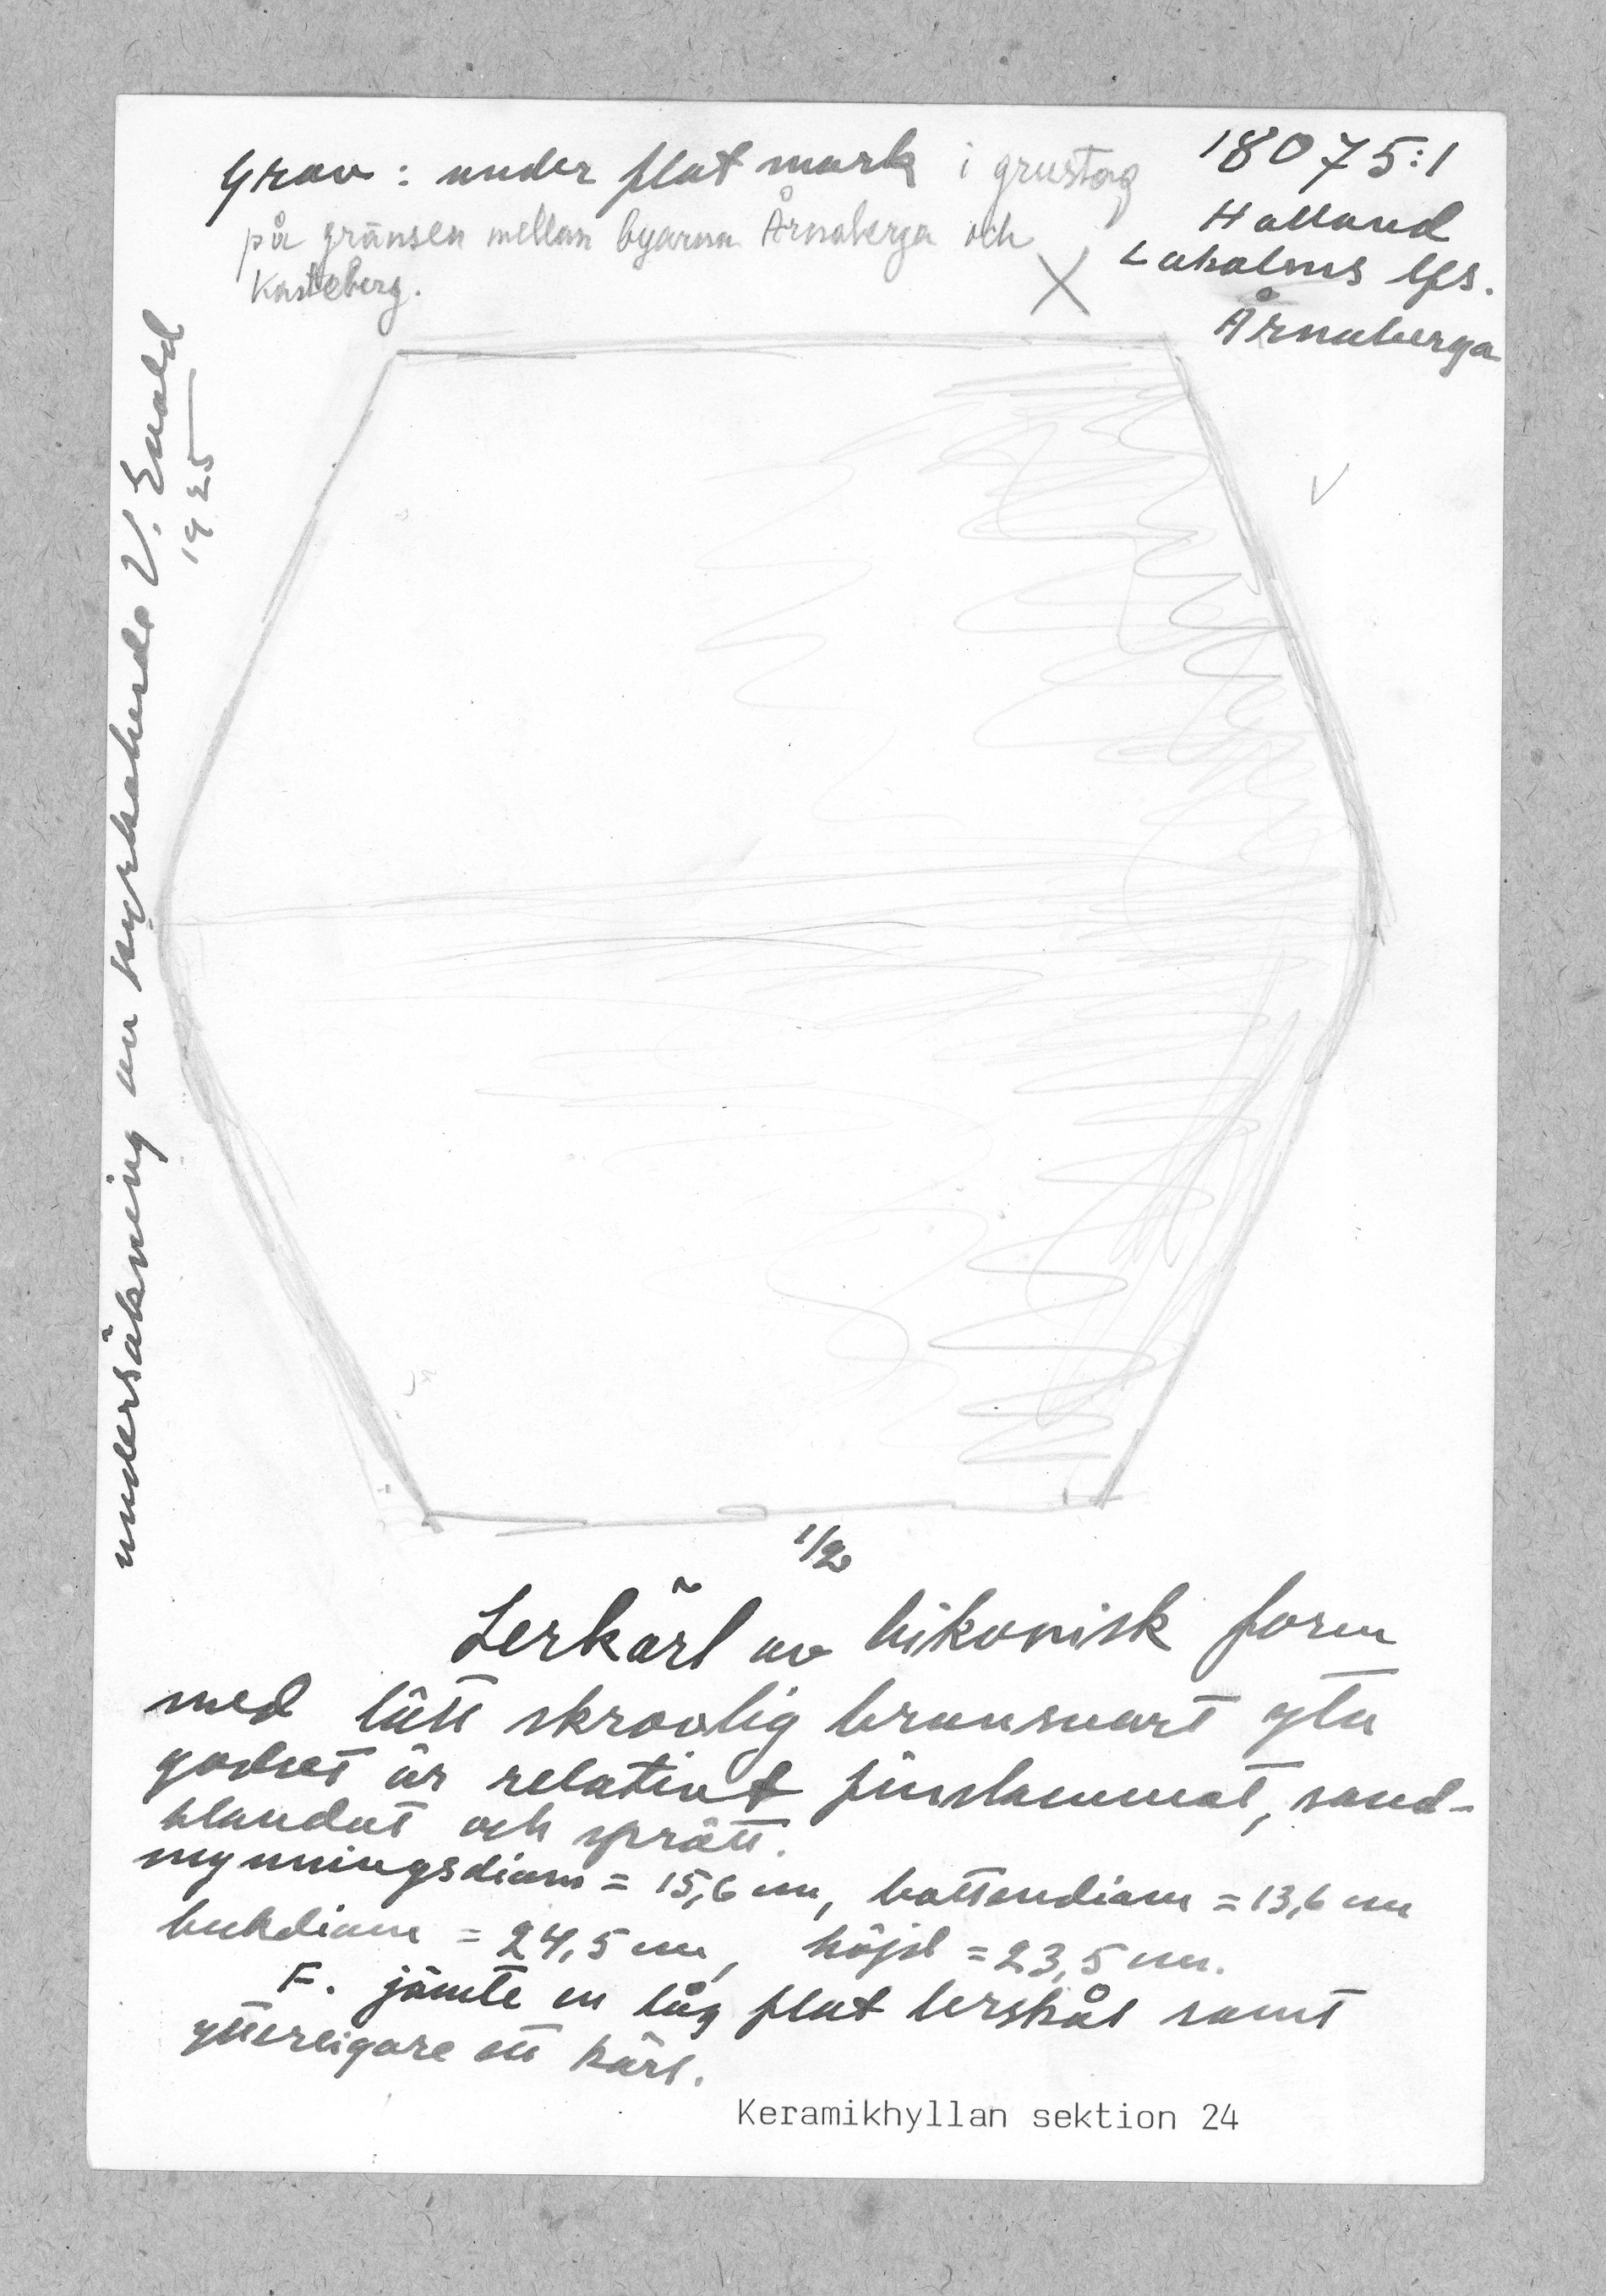 Grav: under flat mark i grustag
på gränsen mellan byarna Årnaberga och
Kasteberg.
18075:1
Halland
Laholms lfs.
Årnaberga
X
undersökning av kyrkoherde V. Ewald
1925
1/2
Lerkärl av bikonisk form
med lätt skrovlig brunsvart yta
godset är relativt finslammat, sand-
blandat och sprött.
mynningsdiam = 15,6 cm, bottendiam = 13,6 cm
bukdiam = 24,5 cm, höjd = 23,5 cm.
F. jämte en låg flat lerskål samt
ytterligare ett kärl.
Keramikhyllan sektion 24